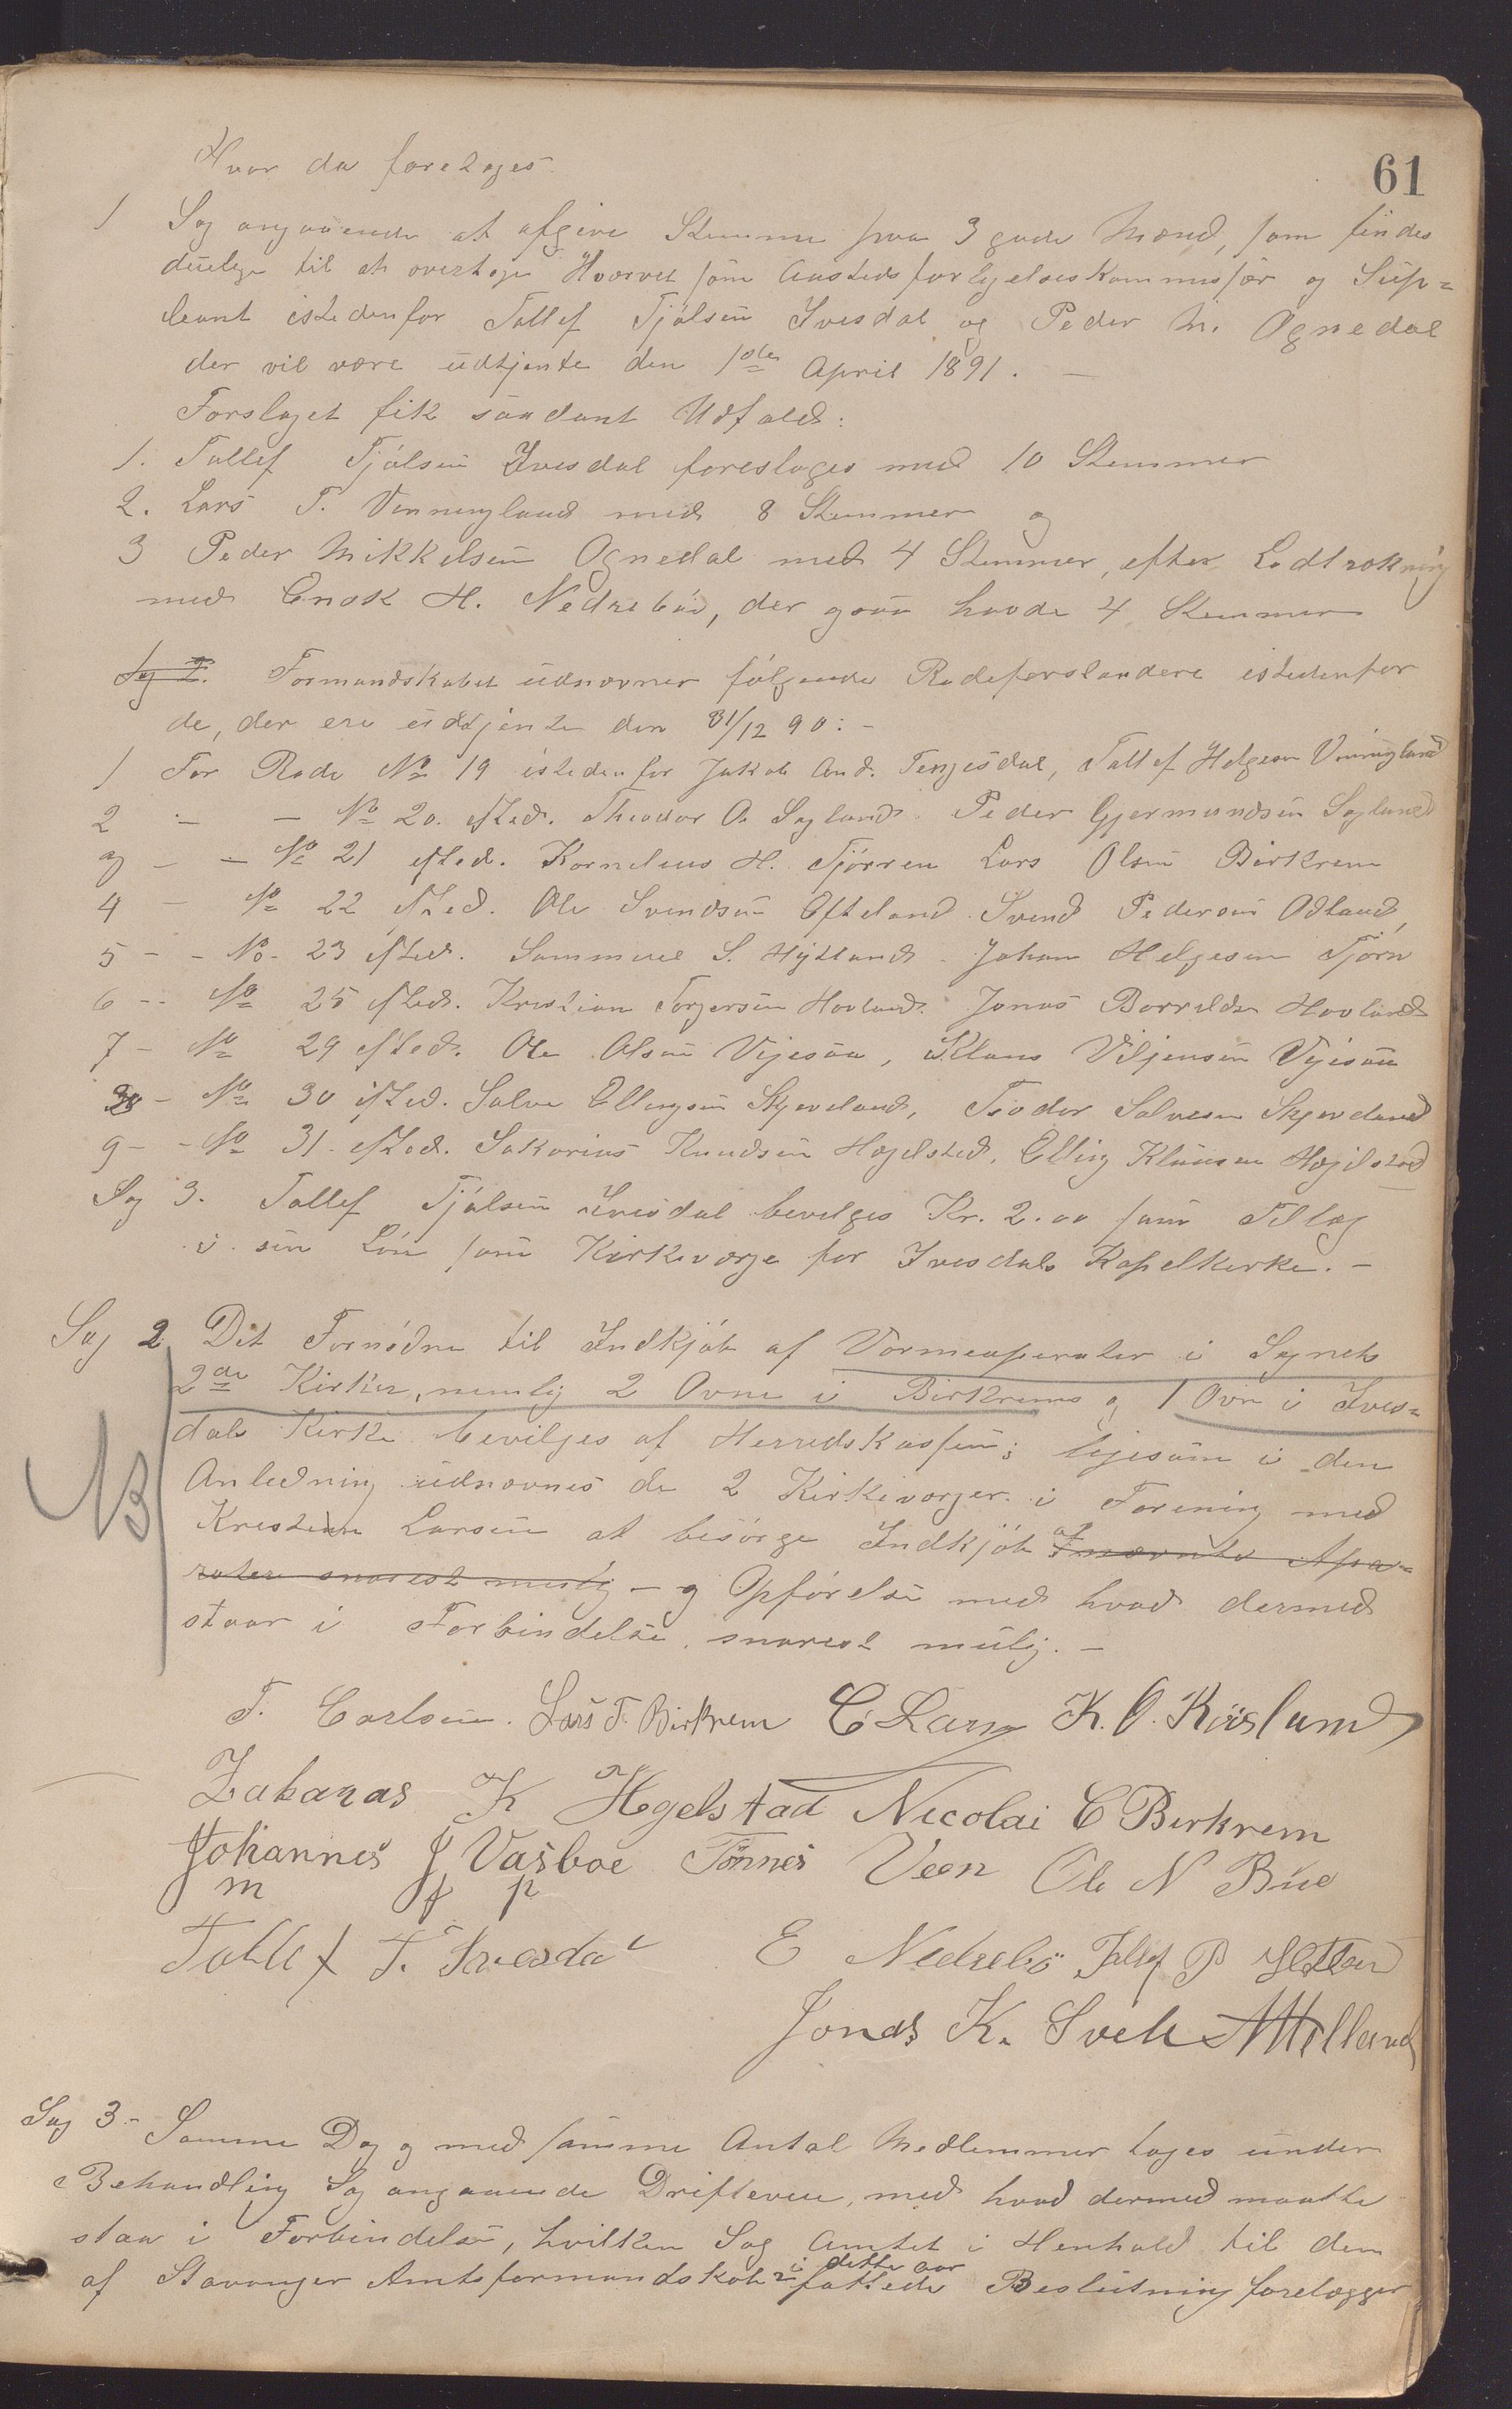 61
Hvor da foretoges
1 Sag angaaende at afgive Stemme paa 3 gode Mænd, som findes
duelige til at overtage Hvervet som Aastedsforligelseskommissær og Sup=
leant istedenfor Tollef Tjølsen Ivesdal og Peder M. Ognedal
der vil være udtjente den 1ste April 1891. —
Forslaget fik saadant Udfald:
1. Tollef Tjølsen Ivesdal foresloges med 10 Stemmer
2. Lars T. Vinningland med 8 Stemmer og
3 Peder Mikkelsen Ognedal med 4 Stemmer, efter Lodtrækning
med Enok H. Nedrebø, der ogsaa havde 4 Stemmer
Sag 2. Formandskabet udnævner følgende Rodeforstandere istedenfor
de, der ere udtjente den 31/12 90: -
1 For Rode No 19 istedenfor Jakob And. Tengesdal, Tollef Helgesen Vinningland
2 - - No 20. isted. Theodor A Sagland. Peder Gjermundsen Sagland
3 - - No 21 isted. Kornelius H. Tjørren Lars Olsen Birkrem
4 - No 22 isted. Ole Svendsen Efteland. Svend Pedersen Odland,
5 - - No. 23 isted. Sammuel S. Hytland - Johan Helgesen Tjørn
6 - - No 25 isted. Kristian Torgersen Hovland. Jonas Hovland
7 - No 29 isted. Ole Olsen Vijesaa, Klaus Viljensen Vijesaa
8 - No 30 isted. Salve Ellingsen Skjeveland, Teodor Salvesen Skjeveland
9 - - No 31. isted. Sakarias Knudsen Hægelstad, Elling Klausen Hægelstad
Sag 3. Tollef Tjølsen Ivesdal bevilges Kr. 2.00 som Tillæg
i sin Løn som Kirkeværge for Ivesdals Kapelkirke. -
Sag 2. Det Fornødne til Indkjøb af Varmeaperater i Sognets
2de Kirker, nemlig 2 Ovne i Birkrems og 1 Ovn i Ives=
dals Kirke bevilges af Herredskassen; ligesom i den
NB
Anledning udnævnes de 2 Kirkeværger i Forening med
Kristian Larsen at besørge Indkjøb af nævnte Apa=
rater snarest mulig - og Opførelse med hvad dermed
staar i Forbindelse, snarest mulig. -
T. Carlsen. Lars T. Birkrem C Larsen K. O. Røysland
Zakarias K Hegelstad Nicolai C Birkrem
Johannes J Vasboe Tønnes Veen Ole N Bue
m f p
Tollef T. Ivesdal E Nedrebø Tollef P
Jonas K. Svele
Sag 3 - Samme Dag og med samme Antal Medlemmer toges under
Behandling Sag angaaende Drifteveie, med hvad dermed maatte
staa i Forbindelse, hvilken Sag Amtet i Henhold til den
af Stavanger Amtsformandskab i dette aar fattede Beslutning forelægger